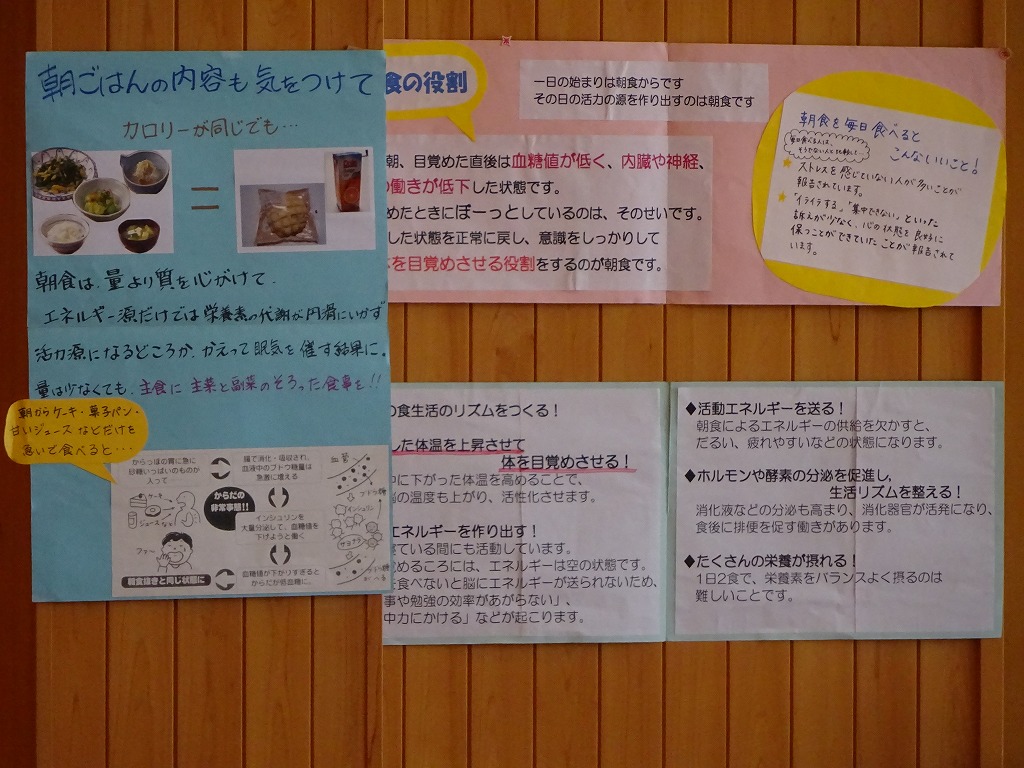 朝ごはんの内容も気をつけて
カロリーが同じでも…
=
朝食は、量より質を心がけて、
エネルギー源だけでは栄養素の代謝が円滑にいかず
活力源になるどころか、かえって眠気を催す結果に。
量は少なくても、主食に主菜と副菜のそろった食事を!!
朝からケーキ・菓子パン・
甘いジュースなどだけを
急いで食べると…
からっぽの胃に急に
砂糖いっぱいのものか
入って……
腸で消化・吸収され、
血液中のブドウ糖量は
急激に増える
からだの
非常事態!!
ケーキ
ジュース
インシュリンを
大量分泌して、血糖値を
下げようと働く
ファ〜
朝食抜きと同じ状態に
血糖値が下がりすぎると
からだが低血糖に…
血管
ブドウ糖
インシュリン
食の役割
一日の始まりは朝食からです
その日の活力の源を作り出すのは朝食です
朝、目覚めた直後は血糖値が低く、内臓や神経、
の働きが低下した状態です。
めたときにぼーっとしているのは、そのせいです。
した状態を正常に戻し、意識をしっかりして
を目覚めさせる役割をするのが朝食です。
朝食を毎日食べると
こんないいこと!
毎日食べる人は、
そうでない人と比較して…
★ストレスを感じていない人が多いことが
報告されています。
★「イライラする」「集中できない」といった
訴えが少なく、心の状態を良好に
保つことができていたことが報告されて
います。
の食生活のリズムをつくる！
した体温を上昇させて
体を目覚めさせる！
中に下がった体温を高めることで、
の温度も上がり、活性化させます。
エネルギーを作り出す！
ている間にも活動しています。
めるころには、エネルギーは空の状態です。
を食べないと脳にエネルギーが送られないため、
事や勉強の効率があがらない」、
中力にかける」などが起こります。
◆活動エネルギーを送る！
朝食によるエネルギーの供給を欠かすと、
だるい、疲れやすいなどの状態になります。
◆ホルモンや酵素の分泌を促進し、
生活リズムを整える！
消化液などの分泌も高まり、消化器官が活発になり、
食後に排便を促す働きがあります。
◆たくさんの栄養が摂れる！
1日2食で、栄養素をバランスよく摂るのは
難しいことです。